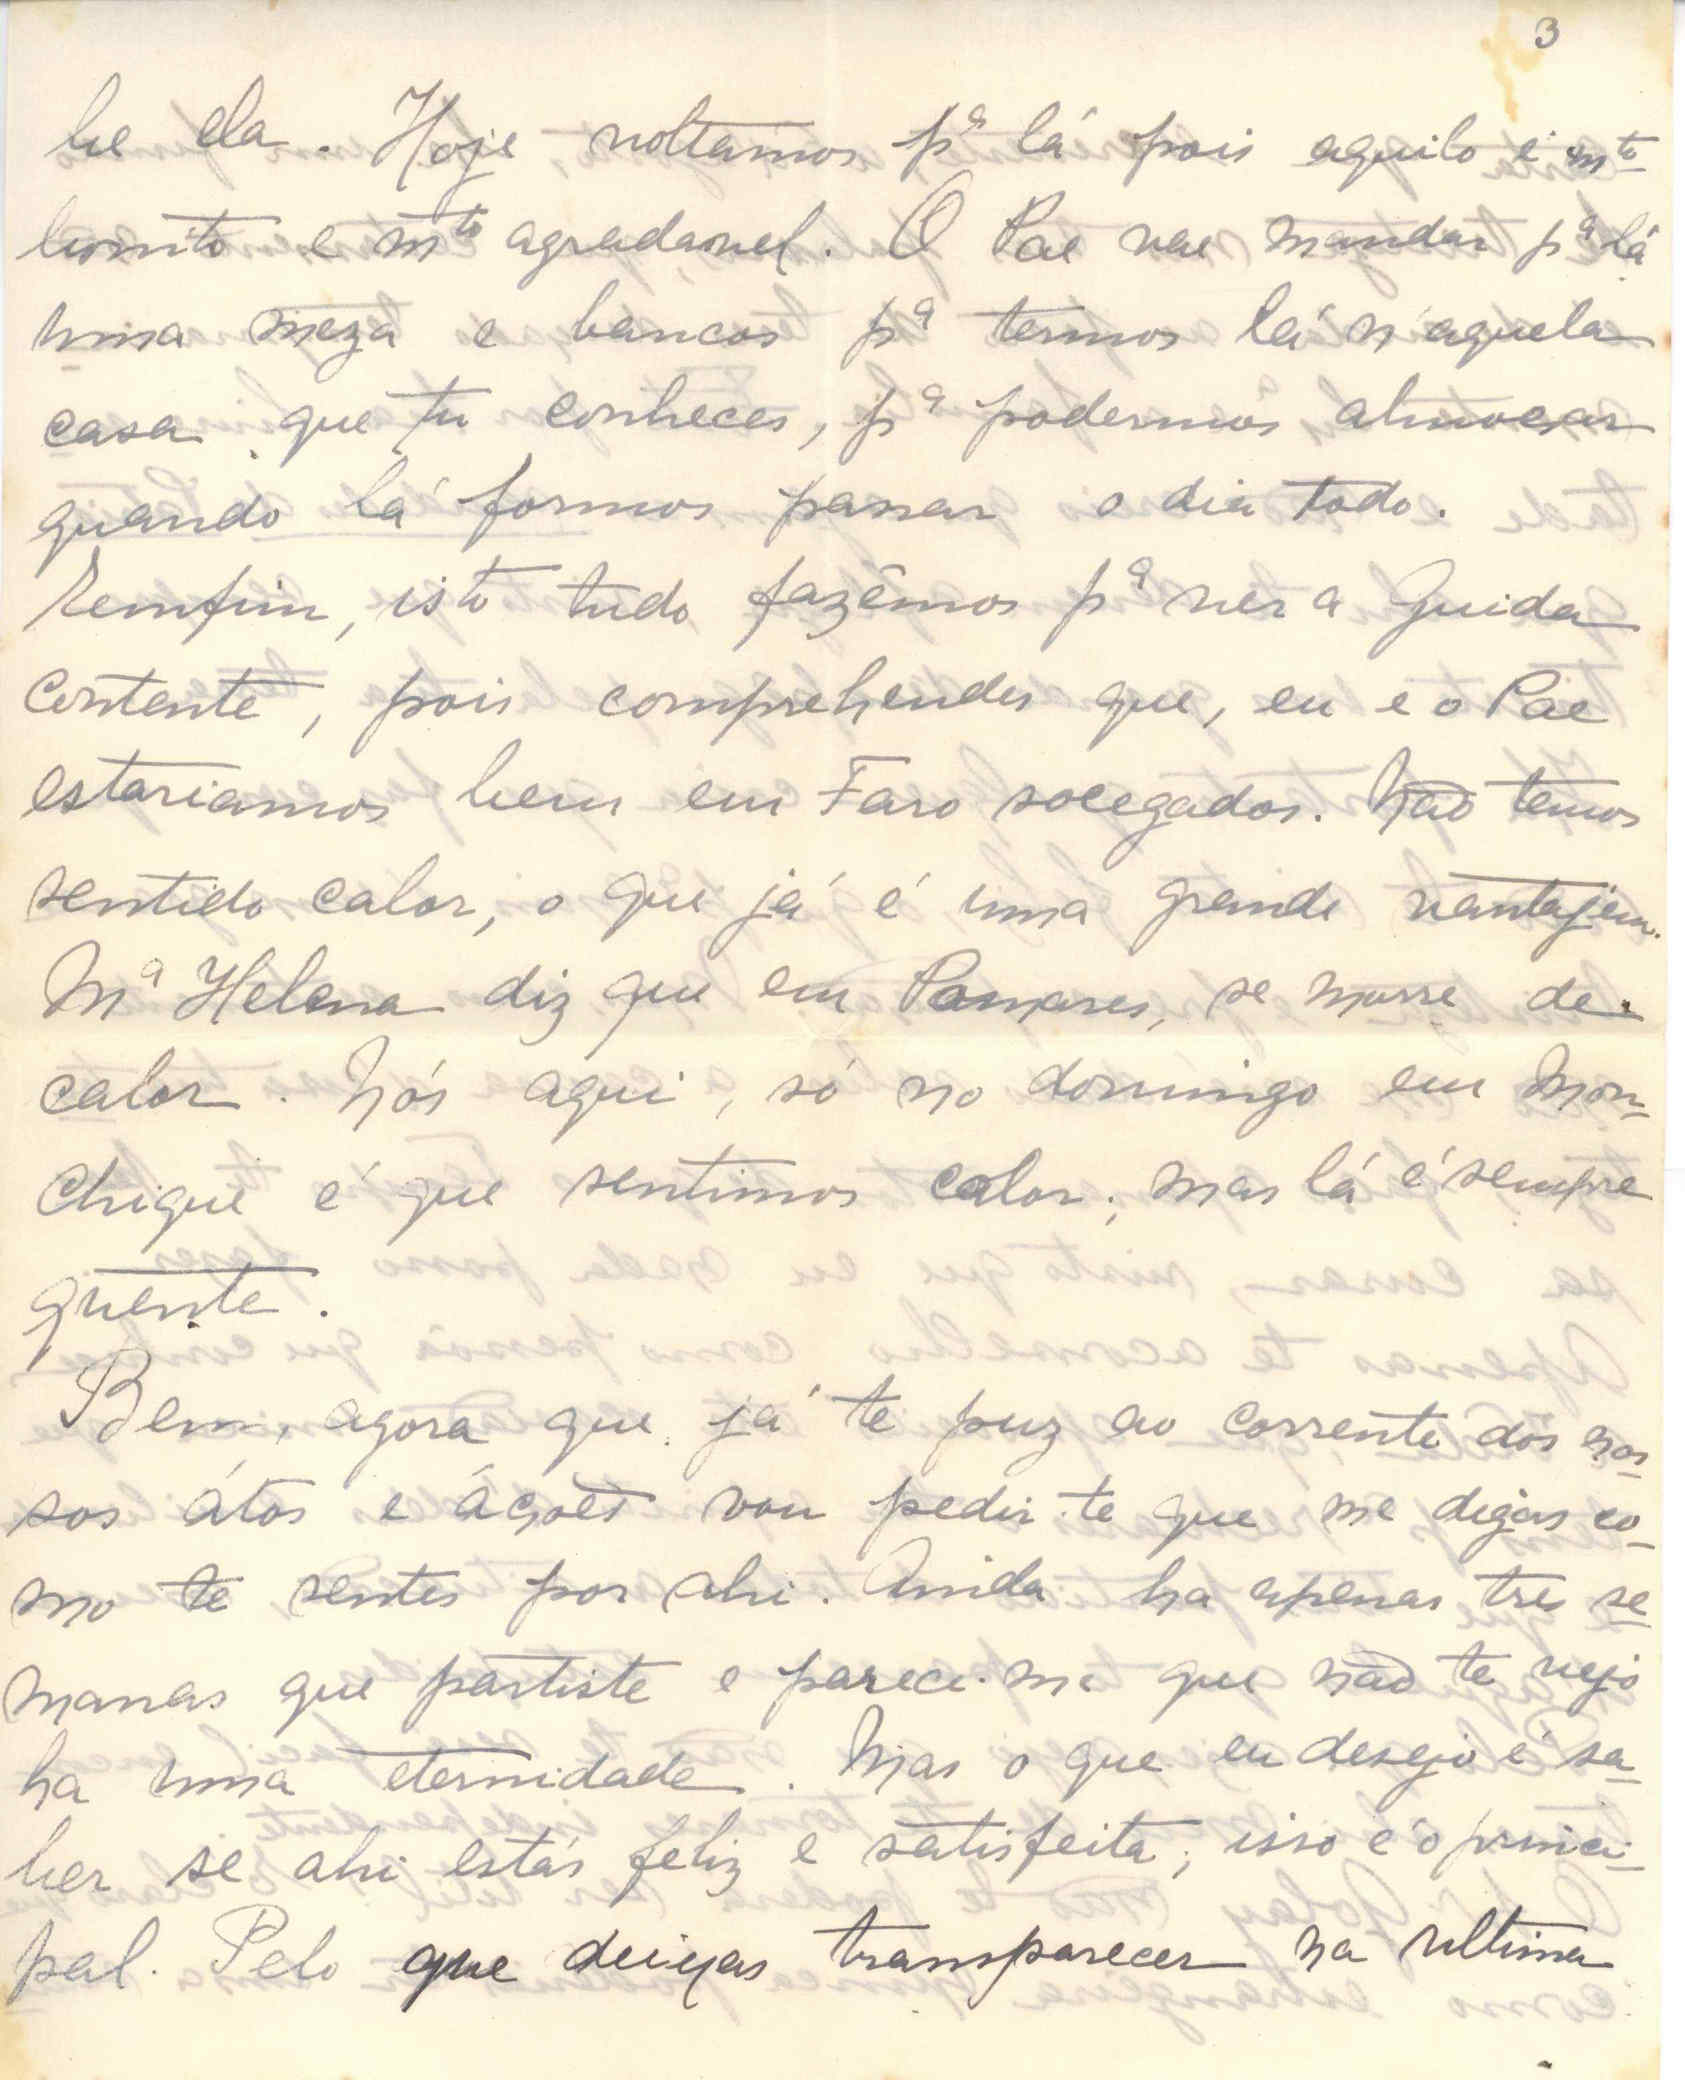 3
be ela. Hoje voltamos pª lá pois aquilo é mto
bonito e mto agradavel. O Pae vae mandar pª lá
uma meza e bancos pª termos lá n'aquela
casa que tu conheces, pª podermos almoçar
quando lá formos passar o dia todo.
Emfim, isto tudo fazêmos pª ver a Guida
contente, pois comprehendes que, eu e o Pae
estariamos bem em Faro socegados. Não temos
sentido calor, o que já é uma grande vantajem.
Mª Helena diz que em Pomares, se morre de
calor. Nós aqui, só no domingo em Mon-
chique é que sentimos calor; mas lá é sempre
quente.
Bem, agora que já te puz ao corrente dos nos-
sos átos e áções vou pedir-te que me digas co-
mo te sentes por ahi. Ainda ha apenas tres se-
manas que partiste e parece-me que não te vejo
ha uma eternidade. Mas o que eu desejo é sa-
ber se ahi estás feliz e satisfeita; isso é o princi-
pal. Pelo que deixas transparecer na ultima